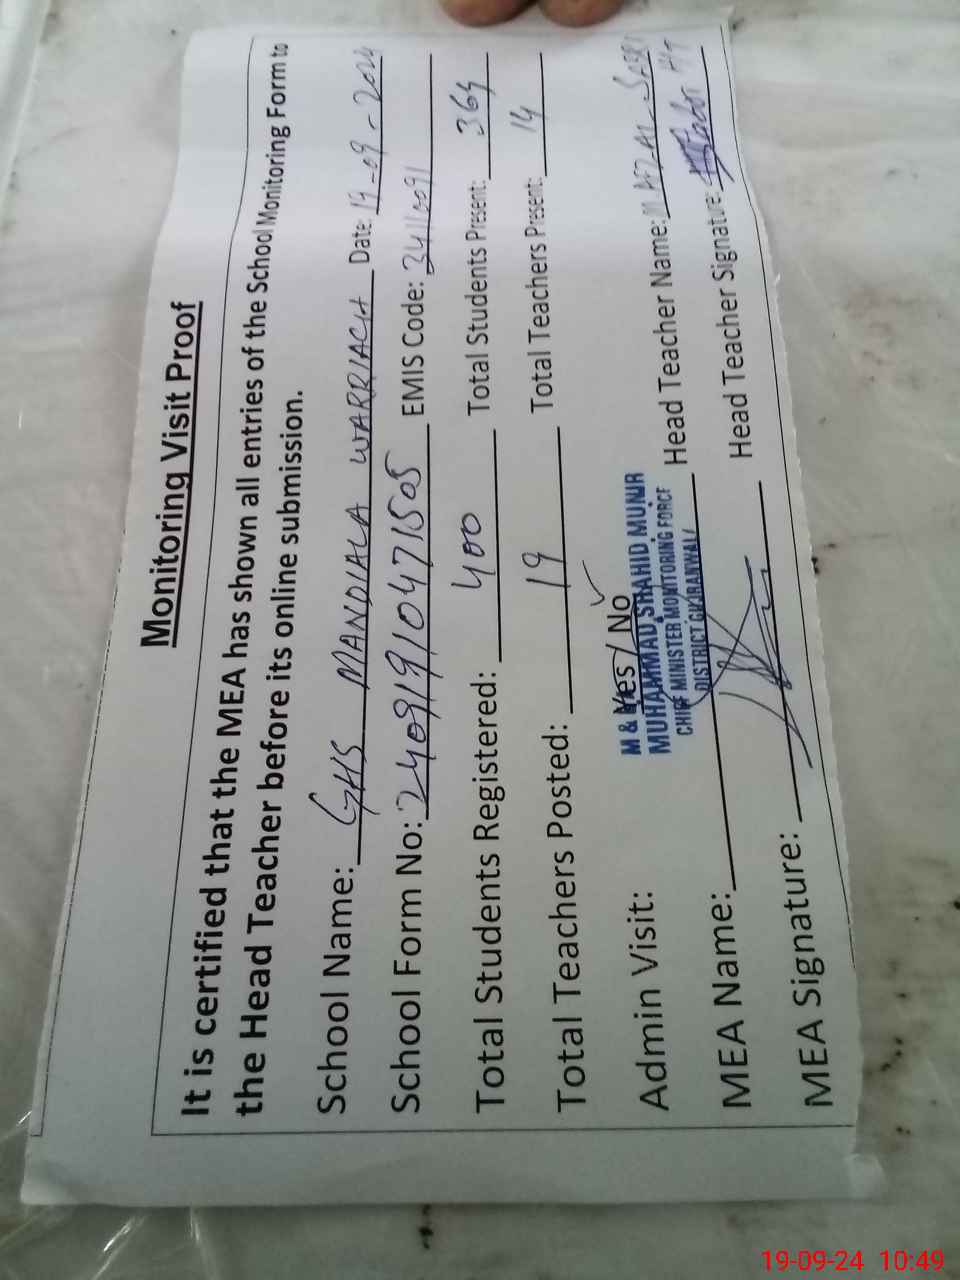 Monitoring Visit Proof
It is certified that the MEA has shown all entries of the School Monitoring Form to
the Head Teacher before its online submission.
School Name: GHS MANDIALA WARRIACH Date: 19-09-2024
School Form No: 24091910471505 EMIS Code: 34110091
Total Students Registered: 400 Total Students Present: 364
Total Teachers Posted: 19 Total Teachers Present: 14
Admin Visit: Yes / No
M &
MUHAMMAD SHAHID MUNIR
CHIEF MINISTER MONITORING FORCE
DISTRICT GUJRANWALA
MEA Name: Head Teacher Name: M AFZAL SABRI
MEA Signature: Head Teacher Signature:
19-09-24 10:49